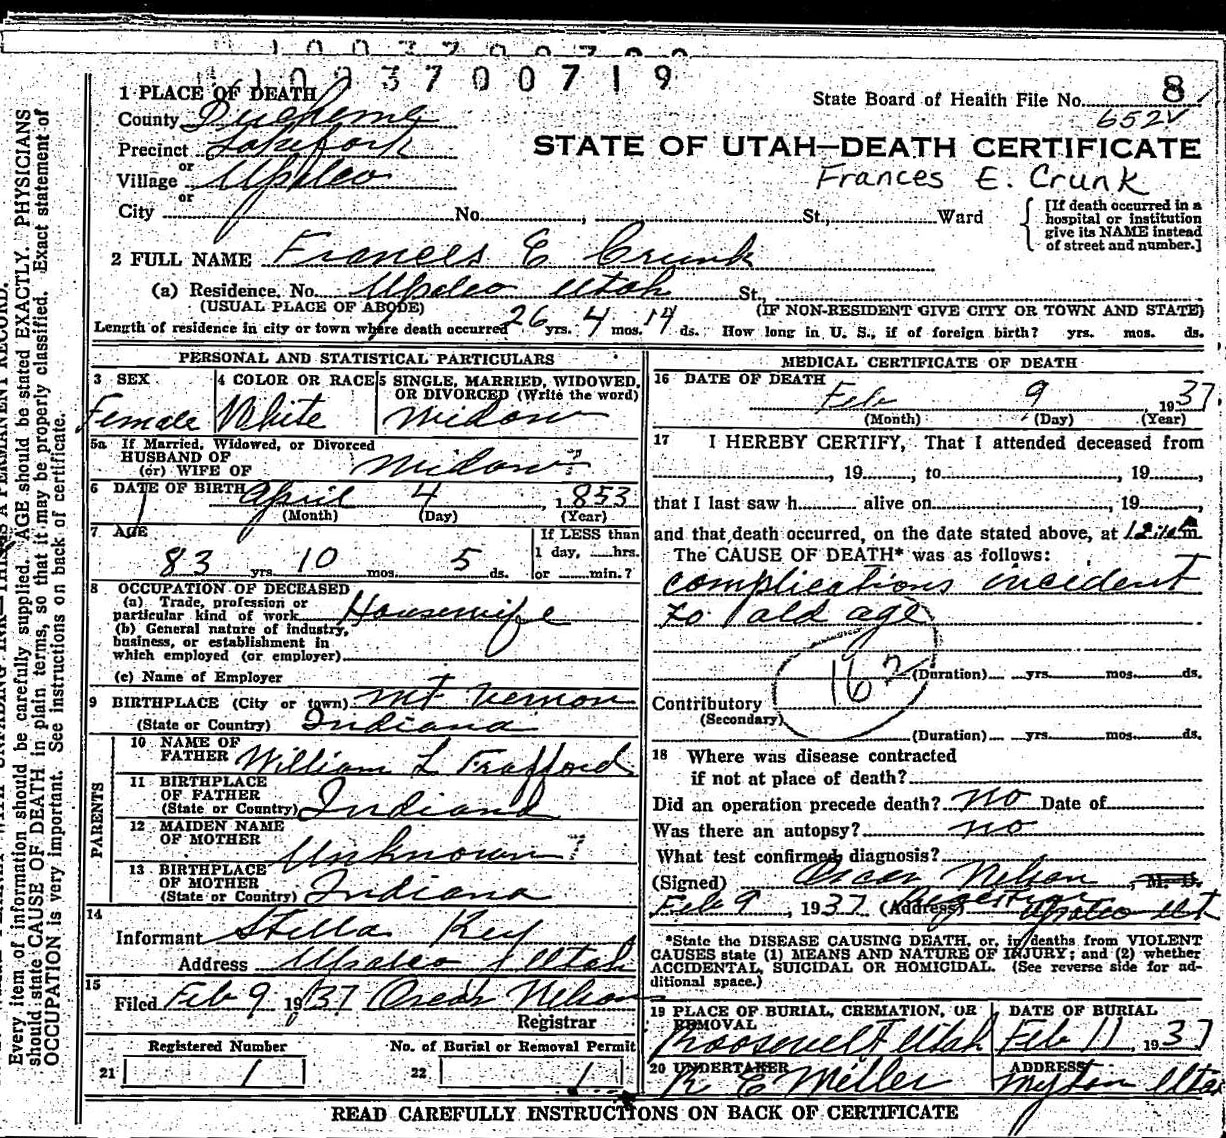 1003700719
8
State Board of Health File No.
652V
STATE OF UTAH—DEATH CERTIFICATE
Frances E. Crunk
1 PLACE OF DEATH
County Duchesne
Precinct Lakefork
or
Village Upalco
or
City No. , St., Ward
[If death occurred in a
hospital or institution
give its NAME instead
of street and number.]
2 FULL NAME Frances E Crunk
(a) Residence. No. Upalco Utah St,
(USUAL PLACE OF ABODE) (IF NON-RESIDENT GIVE CITY OR TOWN AND STATE)
Length of residence in city or town where death occurred 26 yrs. 4 mos. 14 ds. How long in U. S., if of foreign birth? yrs. mos. ds.
PERSONAL AND STATISTICAL PARTICULARS
3 SEX
Female
4 COLOR OR RACE
White
5 SINGLE, MARRIED, WIDOWED,
OR DIVORCED (Write the word)
Widow
5a If Married, Widowed, or Divorced
HUSBAND OF
(or) WIFE OF Widow?
6 DATE OF BIRTH April 4, 1853
(Month) (Day) (Year)
7 AGE
83 yrs. 10 mos. 5 ds.
If LESS than
1 day, hrs.
or min.?
8 OCCUPATION OF DECEASED
(a) Trade, profession or
particular kind of work Housewife
(b) General nature of industry,
business, or establishment in
which employed (or employer)
(c) Name of Employer
9 BIRTHPLACE (City or town) Mt Vernon
(State or Country) Indiana
PARENTS
10 NAME OF
FATHER William L Trafford
11 BIRTHPLACE
OF FATHER
(State or Country) Indiana
12 MAIDEN NAME
OF MOTHER Unknown?
13 BIRTHPLACE
OF MOTHER
(State or Country) Indiana
14
Informant Stella Key
Address Upalco Utah
15
Filed Feb 9 1937 Oscar Nelson
Registrar
Registered Number
21 1
No. of Burial or Removal Permit
22 1
MEDICAL CERTIFICATE OF DEATH
16 DATE OF DEATH
Feb 9 1937.
(Month) (Day) (Year)
17 I HEREBY CERTIFY, That I attended deceased from
, 19 , to , 19 ,
that I last saw h alive on , 19
and that death occurred, on the date stated above, at m
The CAUSE OF DEATH* was as follows:
complications incident
to old age
162
(Duration) yrs. mos. ds.
Contributory
(Secondary)
(Duration) yrs. mos. ds.
18 Where was disease contracted
if not at place of death?
Did an operation precede death? no Date of
Was there an autopsy? no
What test confirmed diagnosis?
(Signed) Oscar Nelson, M. D.
Feb 9, 1937 (Address) Upalco Ut
*State the DISEASE CAUSING DEATH, or, in deaths from VIOLENT
CAUSES state (1) MEANS AND NATURE OF INJURY; and (2) whether
ACCIDENTAL, SUICIDAL OR HOMICIDAL. (See reverse side for ad-
ditional space.)
19 PLACE OF BURIAL, CREMATION, OR
REMOVAL
Roosevelt Utah
DATE OF BURIAL
Feb 11 1937
20 UNDERTAKER
R E Miller
ADDRESS
Myton Utah
READ CAREFULLY INSTRUCTIONS ON BACK OF CERTIFICATE
Every item of information should be carefully supplied. AGE should be stated EXACTLY. PHYSICIANS
should state CAUSE OF DEATH in plain terms, so that it may be properly classified. Exact statement of
OCCUPATION is very important. See instructions on back of certificate.